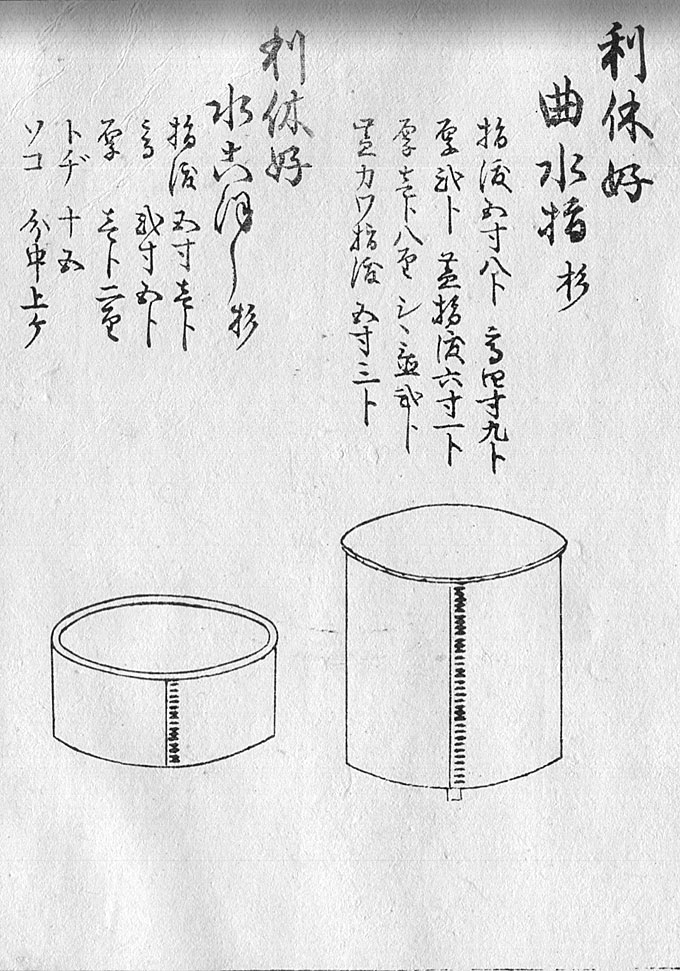 利休好
曲水指 杉
指渡五寸八ト 高四寸九ト
厚弐ト 蓋指渡六寸一ト
厚壱ト八厘 弐ト
蓋カワ指渡 五寸三ト
利休好
水こほし 杉
指渡五寸壱ト
高 弐寸五ト
厚 壱ト二厘
トヂ 十五
ソコ 分中上ケ